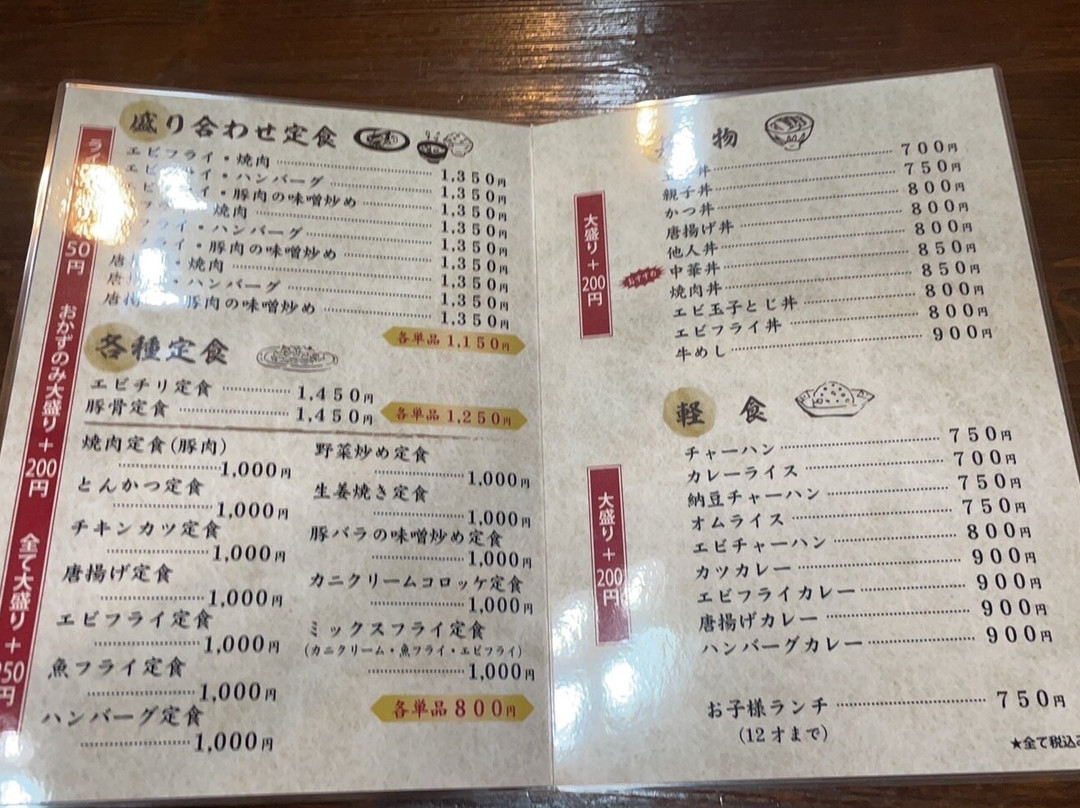 盛り合わせ定食
エビフライ・焼肉 1,350円
エビフライ・ハンバーグ 1,350円
・豚肉の味噌炒め 1,350円
焼肉 1,350円
フライ・ハンバーグ 1,350円
フライ・豚肉の味噌炒め 1,350円
唐 ・焼肉 1,350円
唐 ・ハンバーグ 1,350円
唐揚 ・豚肉の味噌炒め 1,350円
各単品1,150円
ライ 50円 おかずのみ大盛り+200円 全て大盛り+250円
各種定食
エビチリ定食 1,450円
豚骨定食 1,450円
各単品1,250円
焼肉定食(豚肉)
1,000円
とんかつ定食
1,000円
チキンカツ定食
1,000円
唐揚げ定食
1,000円
エビフライ定食
1,000円
魚フライ定食
1,000円
ハンバーグ定食
1,000円
野菜炒め定食
1,000円
生姜焼き定食
1,000円
豚バラの味噌炒め定食
1,000円
カニクリームコロッケ定食
1,000円
ミックスフライ定食
(カニクリーム・魚フライ・エビフライ)
1,000円
各単品800円
物
大盛り+200円
丼 700円
親子丼 750円
かつ丼 800円
唐揚げ丼 800円
他人丼 800円
おすすめ
中華丼 850円
焼肉丼 850円
エビ玉子とじ丼 800円
エビフライ丼 800円
牛めし 900円
軽食
大盛り+200円
チャーハン 750円
カレーライス 700円
納豆チャーハン 750円
オムライス 750円
エビチャーハン 800円
カツカレー 900円
エビフライカレー 900円
唐揚げカレー 900円
ハンバーグカレー 900円
お子様ランチ 750円
(12才まで)
★全て税込み